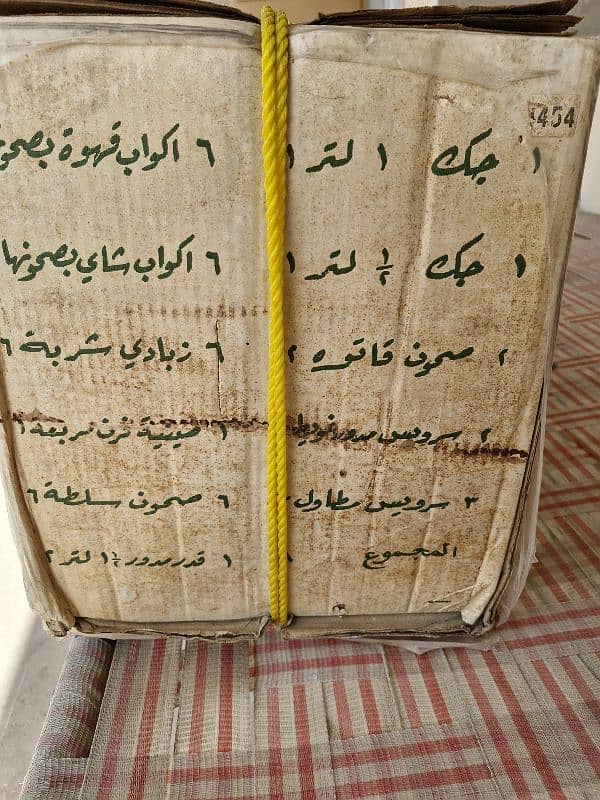 454
١ جك ١ لتر ١ ٦ اكواب قهوة
١ جك ½ لتر ١ ٦ اكواب شاي بصحونها
٢ صحون قاتوه ٦ زبادي شربة ٦
٢ سرويس مدور ١ صينية فرن مربعة ١
٣ سرويس مطاول ٦ صحون سلطة ٦
المجموع ١ قدر مدور ½١ لتر ٢